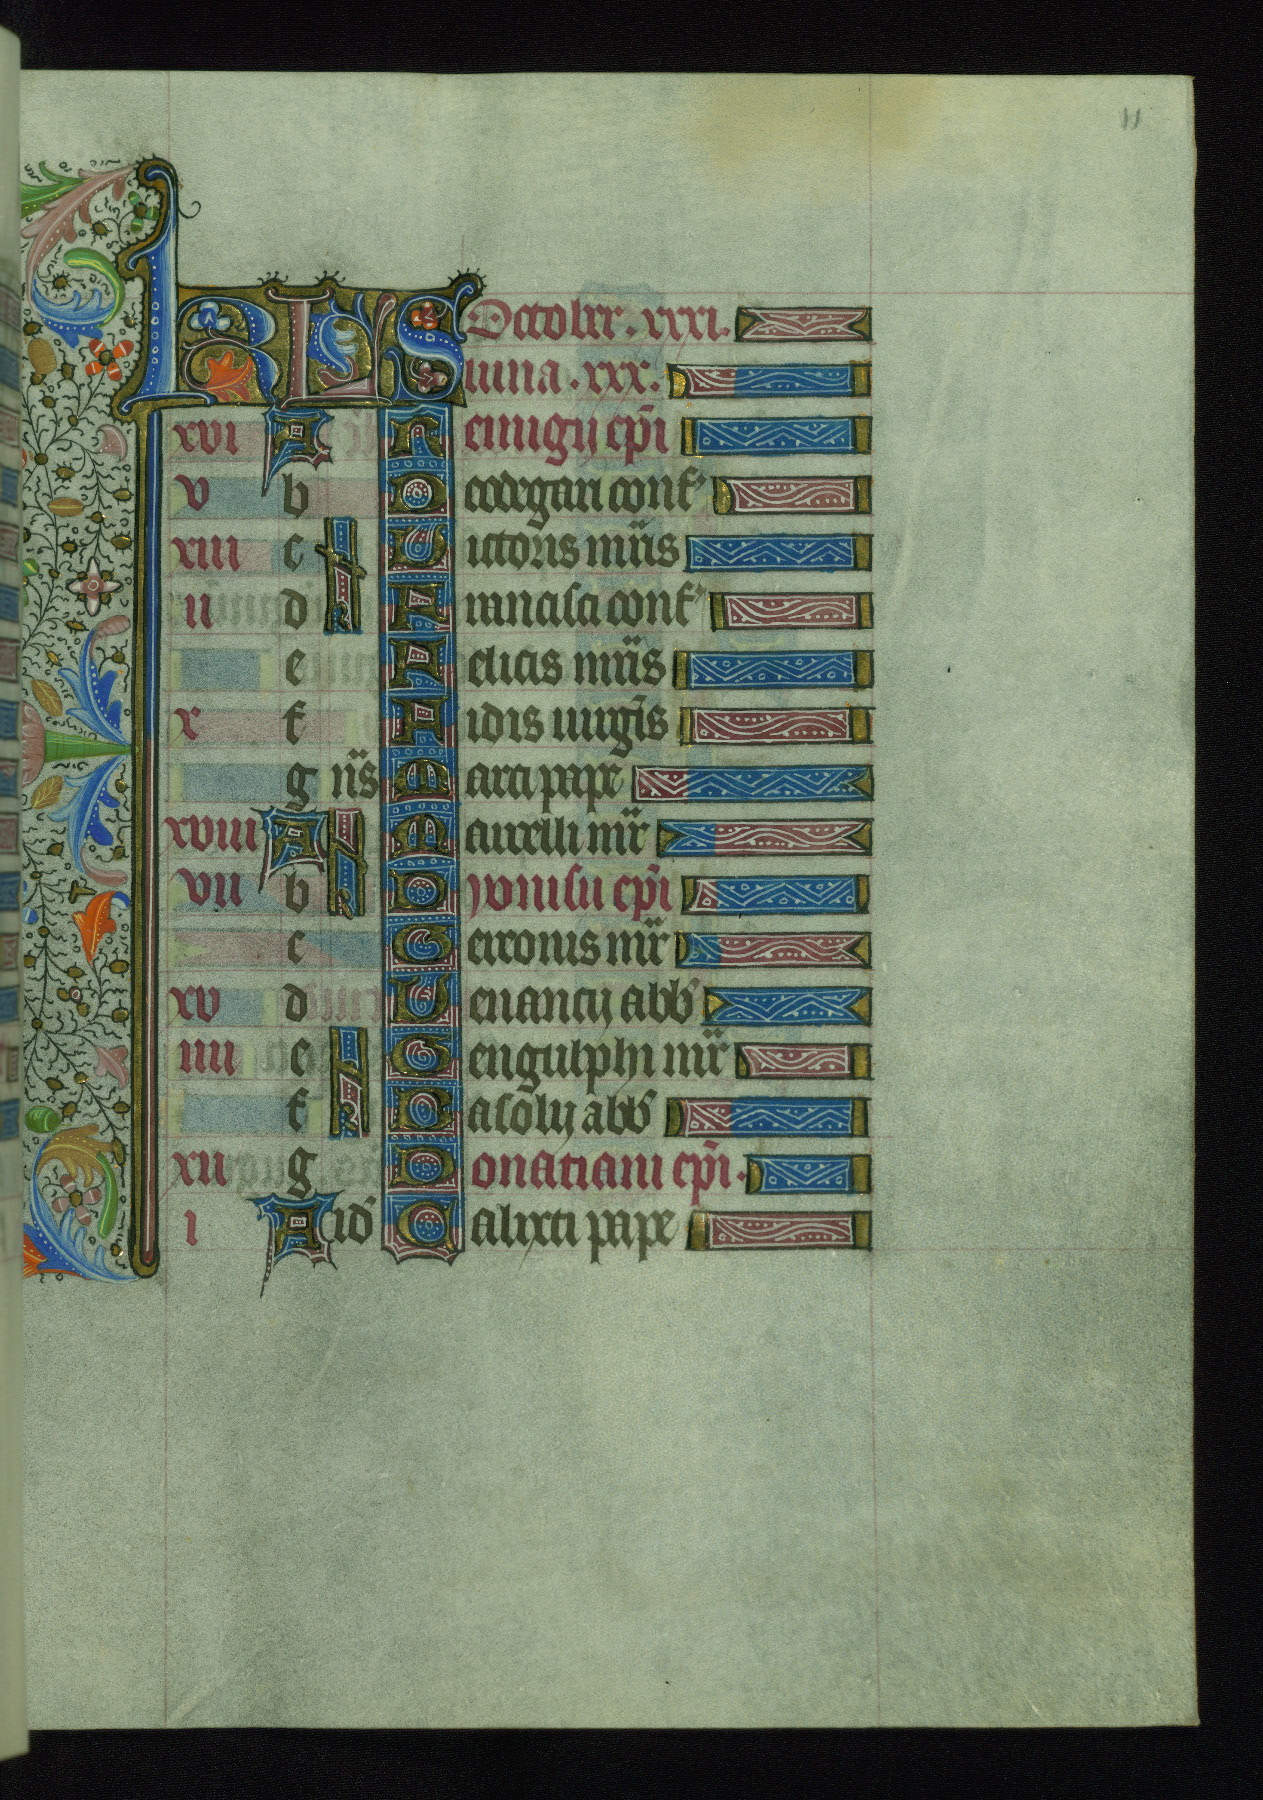 11
KL Octobr. xxxi.
luna. xxx.
xvi A Remigii ep̄i
v b Leodegarii conf
xiii c N Victoris mr̄is
ii d Francisci conf
e Felicis mr̄is
x f Fidis uirgīs
g nōs Marci pape
xviii A Marcelli mr̄
vii b Dyonisii ep̄i
c Gereonis mr̄
xv d Venancii abb
iiii e Gengulphi mr̄
f Basolii abb
xii g Donatiani ep̄i.
i A id Calixti pape